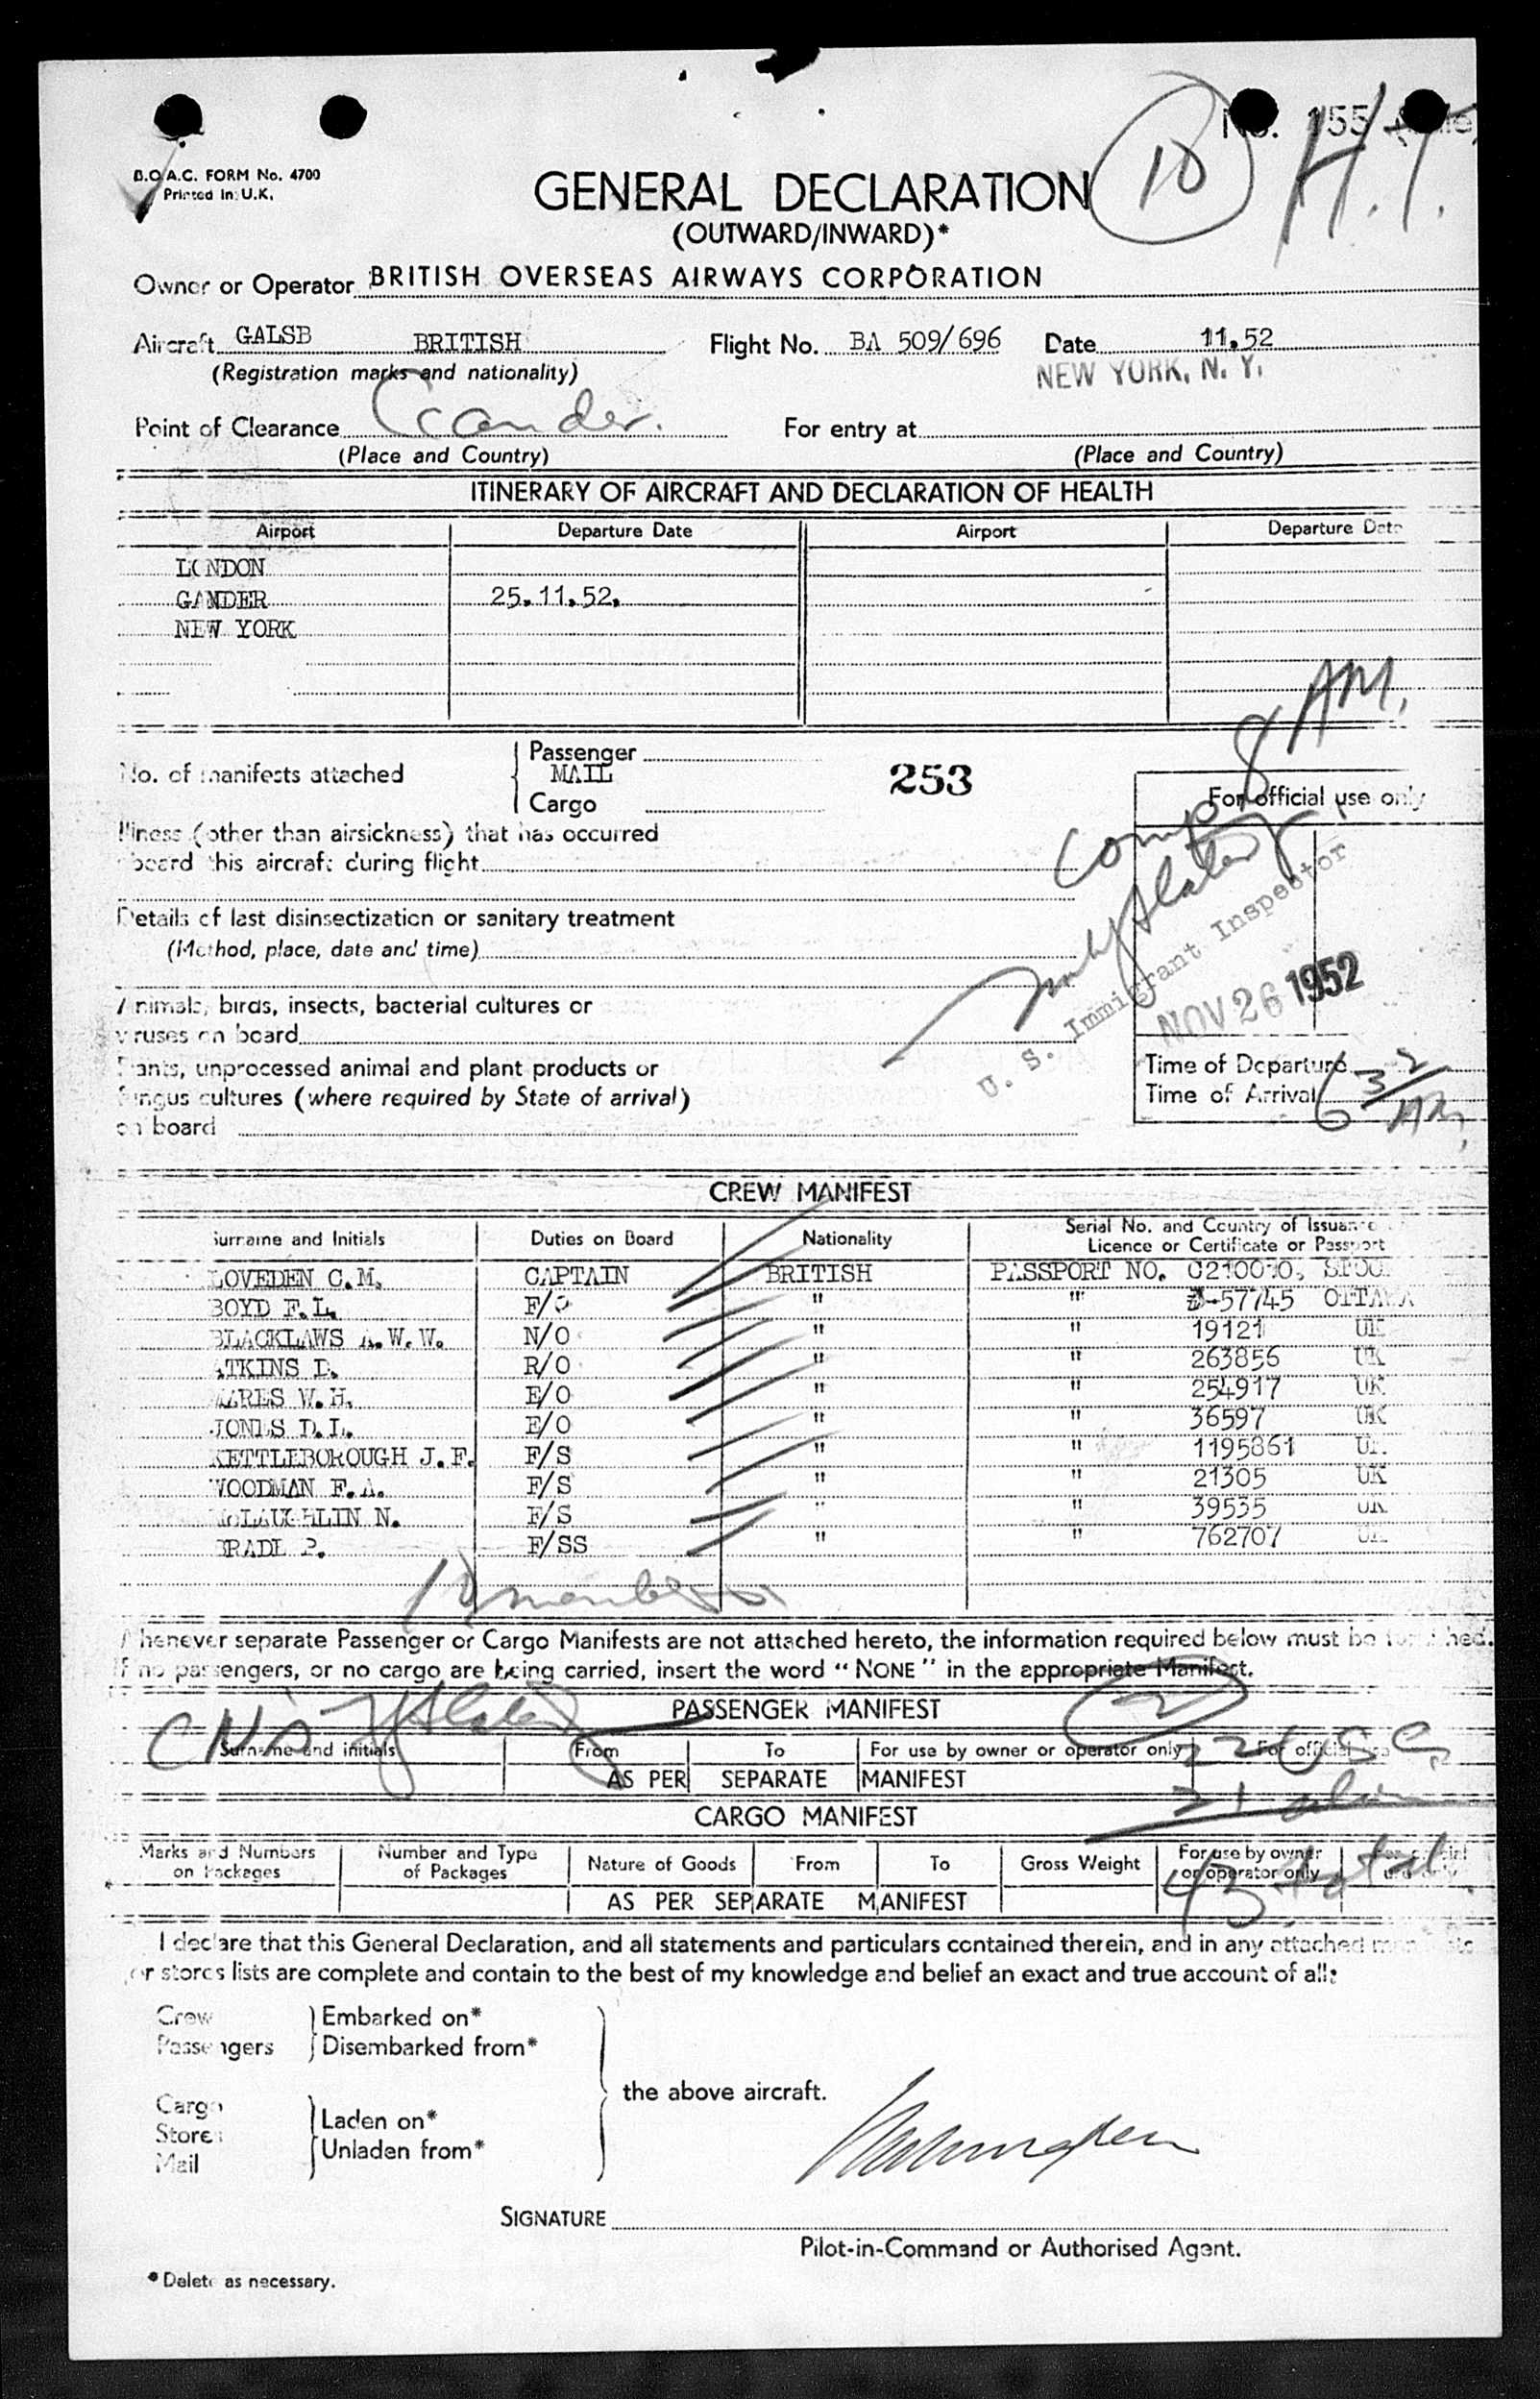 No. 155
10 H.T.
B.O.A.C. FORM No. 4700
Printed in U.K.
GENERAL DECLARATION
(OUTWARD/INWARD)*
Owner or Operator BRITISH OVERSEAS AIRWAYS CORPORATION
Aircraft GALSB BRITISH Flight No. BA 509/696 Date 11.52
(Registration marks and nationality) NEW YORK, N. Y.
Point of Clearance Gander. For entry at
(Place and Country) (Place and Country)
ITINERARY OF AIRCRAFT AND DECLARATION OF HEALTH
Airport Departure Date Airport Departure Date
LONDON
GANDER 25.11.52.
NEW YORK
8 AM.
No. of manifests attached Passenger
MAIL 253
Cargo
For official use only
Illness (other than airsickness) that has occurred
aboard this aircraft during flight
Comp
Details of last disinsectization or sanitary treatment
(Method, place, date and time)
U. S. Immigrant Inspector
NOV 26 1952
Animals, birds, insects, bacterial cultures or
viruses on board
Plants, unprocessed animal and plant products or
fungus cultures (where required by State of arrival)
on board
Time of Departure
Time of Arrival 6 32 AM.
CREW MANIFEST
Surname and Initials Duties on Board Nationality Serial No. and Country of Issuance
Licence or Certificate or Passport
LOVEDEN C.M. CAPTAIN BRITISH PASSPORT NO.
BOYD F.L. F/O " " -57745 OTTAWA
BLACKLAWS A.W.W. N/O " " 19121 UK
ATKINS D. R/O " " 263856 UK
MARES W.H. E/O " " 254917 UK
JONES D.L. E/O " " 36597 UK
KETTLEBOROUGH J.F. F/S " " 1195861 UK
WOODMAN F.A. F/S " " 21305 UK
McLAUGHLIN N. F/S " " 39535 UK
F/SS " " 762707 UK
10 members
Whenever separate Passenger or Cargo Manifests are not attached hereto, the information required below must be furnished.
If no passengers, or no cargo are being carried, insert the word "NONE" in the appropriate Manifest.
PASSENGER MANIFEST
2
Surname and initials From To For use by owner or operator only For official use
22 USC
AS PER SEPARATE MANIFEST
21 alien
CARGO MANIFEST
Marks and Numbers on Packages Number and Type of Packages Nature of Goods From To Gross Weight For use by owner or operator only For official use only
43 total
AS PER SEPARATE MANIFEST
I declare that this General Declaration, and all statements and particulars contained therein, and in any attached manifests
or stores lists are complete and contain to the best of my knowledge and belief an exact and true account of all:
Crew Embarked on*
Passengers Disembarked from*
the above aircraft.
Cargo
Stores Laden on*
Mail Unladen from*
SIGNATURE
Pilot-in-Command or Authorised Agent.
* Delete as necessary.